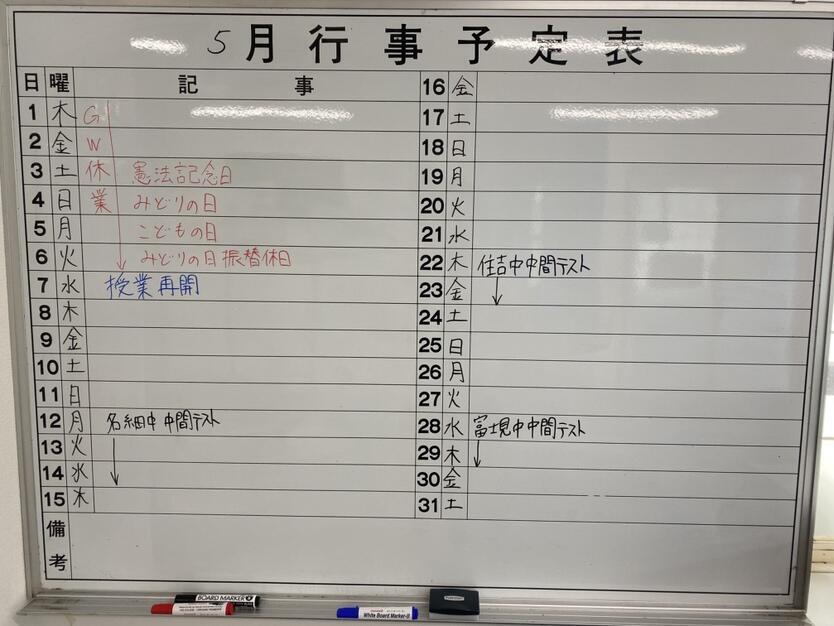 5月行事予定表
日 曜 記事
1 木 G
2 金 W
3 土 休 憲法記念日
4 日 業 みどりの日
5 月 こどもの日
6 火 みどりの日振替休日
7 水 授業再開
8 木
9 金
10 土
11 日
12 月 名細中中間テスト
13 火
14 水
15 木
備考
16 金
17 土
18 日
19 月
20 火
21 水
22 木 住吉中中間テスト
23 金
24 土
25 日
26 月
27 火
28 水 富士見中中間テスト
29 木
30 金
31 土
BOARD MARKER
White Board Marker